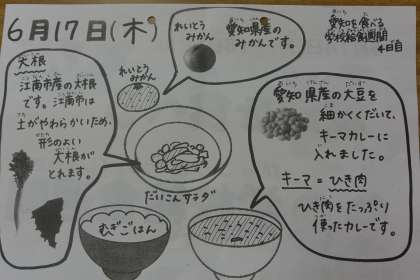 6月17日(木)
れいとう
みかん
愛知県産の
みかんです。
愛知を食べる
学校給食週間
4日目
大根
江南市産の大根
です。江南市は
土がやわらかいため、
形のよい
大根が
とれます。
れいとう
みかん
だいこんサラダ
むぎごはん
愛知県産の大豆を
細かくくだいて、
キーマカレーに
入れました。
キーマ=ひき肉
ひき肉をたっぷり
使ったカレーです。